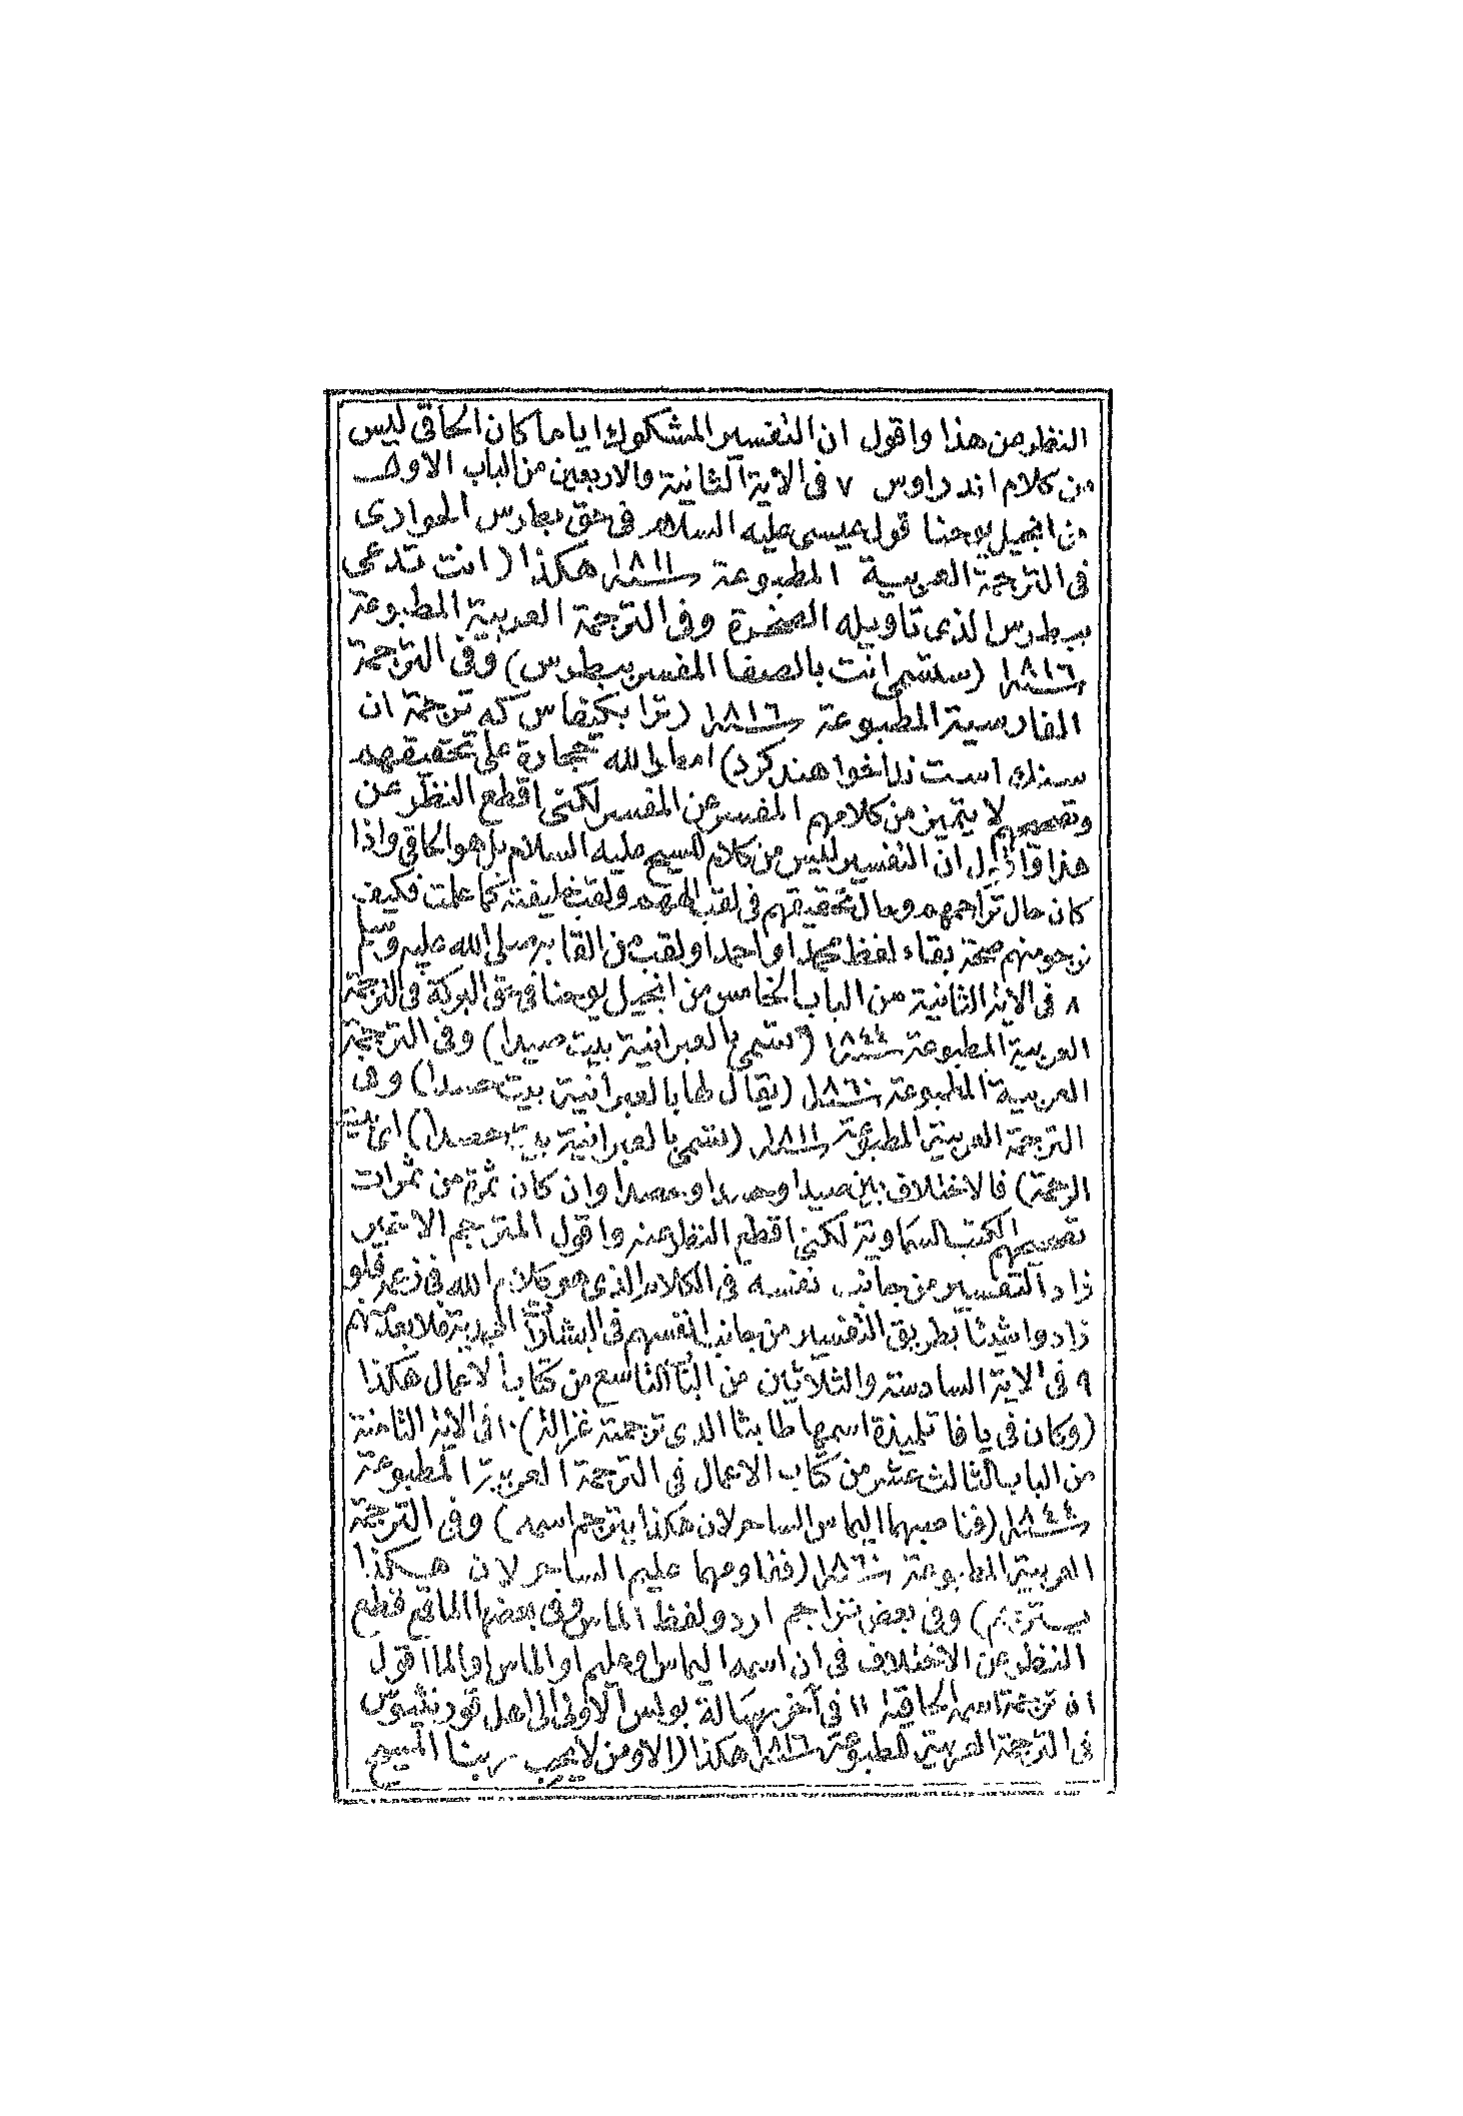 النظر من هذا واقول ان التفسير المشكوك ايا ما كان الحاقي ليس
من كلام اندراوس ٧ فى الآية الثانية والاربعين من الباب الاول
من انجيل يوحنا قول عيسى عليه السلام فى حق بطرس الحوارى
فى الترجمة العربية المطبوعة سنة ١٨١١ هكذا (انت تدعى
ببطرس الذى تاويله الصخرة وفى الترجمة العربية المطبوعة
سنة ١٨١٦ (ستسمى انت بالصفا المفسر ببطرس) وفى الترجمة
الفارسية المطبوعة سنة ١٨١٦ (ترا بكيفاس كه ترجمة ان
سنك است ندا خواهند كرد) امطر الله حجارة على تحقيقهم
وتصحيحهم لا يتميز من كلامهم المفسر عن المفسر لكنى اقطع النظر عن
هذا واقول ان التفسير ليس من كلام المسيح عليه السلام بل هو الحاقى واذا
كان حال تراجمهم وحال تحقيقهم فى لقب الههم ولقب خليفته كما علمت فكيف
نرجو منهم صحة بقاء لفظ محمد او احمد او لقب من القابه صلى الله عليه وسلم
٨ فى الآية الثانية من الباب الخامس من انجيل يوحنا فى حق البركة فى الترجمة
العربية المطبوعة سنة ١٨٤٤ (تسمى بالعبرانية بيت صيدا) وفى الترجمة
العربية المطبوعة سنة ١٨٦٠ (يقال لها بالعبرانية بيت حسدا) وفى
الترجمة العربية المطبوعة سنة ١٨١١ (تسمى بالعبرانية بيت حصدا) اى بيت
الرحمة) فالاختلاف بين صيدا وحسدا وحصدا وان كان ثمرة من ثمرات
تصحيحهم الكتب السماوية لكنى اقطع النظر عنه واقول المترجم الاخير
زاد التفسير من جانب نفسه فى الكلام الذى هو كلام الله فى زعمه فلو
زادوا شيئا بطريق التفسير من جانب انفسهم فى البشارات المحمدية فلا بعد منهم
٩ فى الآية السادسة والثلاثين من الباب التاسع من كتاب الاعمال هكذا
(وكان فى يافا تلميذة اسمها طابيثا الذى ترجمته غزالة) ١٠ فى الآية الثامنة
من الباب الثالث عشر من كتاب الاعمال فى الترجمة العربية المطبوعة
سنة ١٨٤٤ (فناصبهما اليماس الساحر لان هكذا يترجم اسمه) وفى الترجمة
العربية المطبوعة سنة ١٨٦٠ (فقاومهما عليم الساحر لان هكذا
يترجم) وفى بعض تراجم اردو لفظ الماس وفى بعضها الما فمع قطع
النظر عن الاختلاف فى ان اسمه اليماس او عليم او الماس او الما اقول
ان ترجمة اسمه الحاقية ١١ فى آخر رسالة بولس الاولى الى اهل قورنثيوس
فى الترجمة العربية المطبوعة سنة ١٨١٦ هكذا (الا ومن لا يحب ربنا المسيح